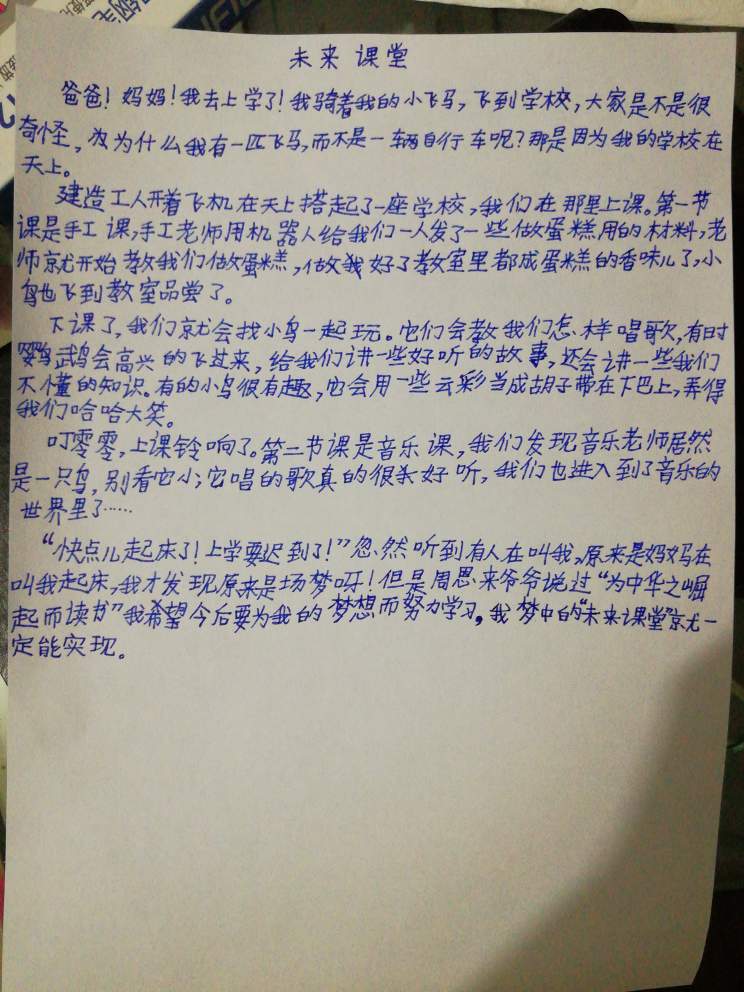 未来课堂
爸爸！妈妈！我去上学了！我骑着我的小飞马，飞到学校，大家是不是很
奇怪，为为什么我有一匹飞马，而不是一辆自行车呢？那是因为我的学校在
天上。
建造工人开着飞机在天上搭起了一座学校，我们在那里上课。第一节
课是手工课，手工老师用机器人给我们一人发了一些做蛋糕用的材料，老
师就开始教我们做蛋糕，做我好了教室里都成蛋糕的香味儿了，小
鸟也飞到教室品尝了。
下课了，我们就会找小鸟一起玩。它们会教我们怎样唱歌，有时
鹦鹉会高兴的飞过来，给我们讲一些好听的故事，还会讲一些我们
不懂的知识。有的小鸟很有趣，它会用一些云彩当成胡子带在下巴上，弄得
我们哈哈大笑。
叮零零，上课铃响了。第二节课是音乐课，我们发现音乐老师居然
是一只鸟，别看它小；它唱的歌真的很好听，我们也进入到了音乐的
世界里了……
“快点儿起床了！上学要迟到了！”忽然听到有人在叫我，原来是妈妈在
叫我起床，我才发现原来是场梦呀！但是周恩来爷爷说过“为中华之崛
起而读书”我希望今后要为我的梦想而努力学习，我梦中的“未来课堂”就一
定能实现。